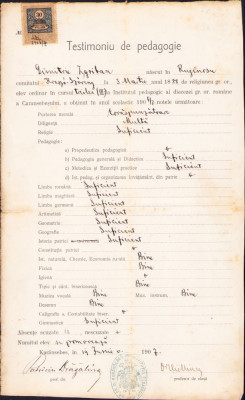 Testimoniu de pedagogie
Dimitru Zgriban născut în Rugénosa
comitatul Krassó-Szörény la 3 Martie 1888 de religiunea gr. or.,
elev ordinar în cursul (III) a Institutul pedagogic al diecesei gr. or. române
a Caransebeşului, a obţinut în anul scolastic 190 notele următoare:
Purtarea morală corespunzătoare
Diligenţă multă
Religia Suficient
Pedagogie:
a) Propedeutica pedagogică +
b) Pedagogia generală şi Didactica Suficient
c) Metodica şi Exerciţii practice Suficient
d) Ist. pedag. şi organizarea învăţăm. din patrie +
Limba română Suficient
Limba maghiară Suficient
Limba germană Suficient
Aritmetică Suficient
Geometria Suficient
Geografia Suficient
Istoria patriei Suficient
Constituţia patriei +
Ist. naturală, Chemia, Economia rurală Bine
Fizica Bine
Igiena +
Tipic şi cânt. bisericească Bine
Muzica vocală Bine Muz. instrum. Bine
Desemn Bine
Caligrafia +
Gimnastica Suficient
Absenţe scuzate 12 nescuzate +
Numitul elev se promovează
Karánsebes, 14 Junie 1907
Patriciu Drăgălina